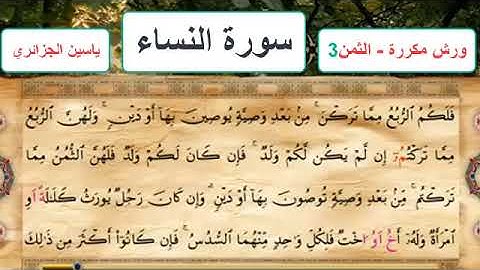 ورش مكررة - الثمن3
سورة النساء
ياسين الجزائري
فَلَكُمُ الرُّبُعُ مِمَّا تَرَكْنَ مِنۢ بَعْدِ وَصِيَّةٍ يُوصِينَ بِهَا أَوْ دَيْنٍ وَلَهُنَّ الرُّبُعُ
مِمَّا تَرَكْتُمُۥٓ إِن لَّمْ يَكُن لَّكُمْ وَلَدٌ فَإِن كَانَ لَكُمْ وَلَدٌ فَلَهُنَّ الثُّمُنُ مِمَّا
تَرَكْتُم مِّنۢ بَعْدِ وَصِيَّةٍ تُوصُونَ بِهَا أَوْ دَيْنٍ وَإِن كَانَ رَجُلٌ يُورَثُ كَلَٰلَةً اَوِ
اِمْرَأَةٌ وَلَهُۥٓ أَخٌ اَوُ ا۟خْتٌ فَلِكُلِّ وَٰحِدٍ مِّنْهُمَا السُّدُسُ فَإِن كَانُوٓا۟ أَكْثَرَ مِن ذَٰلِكَ